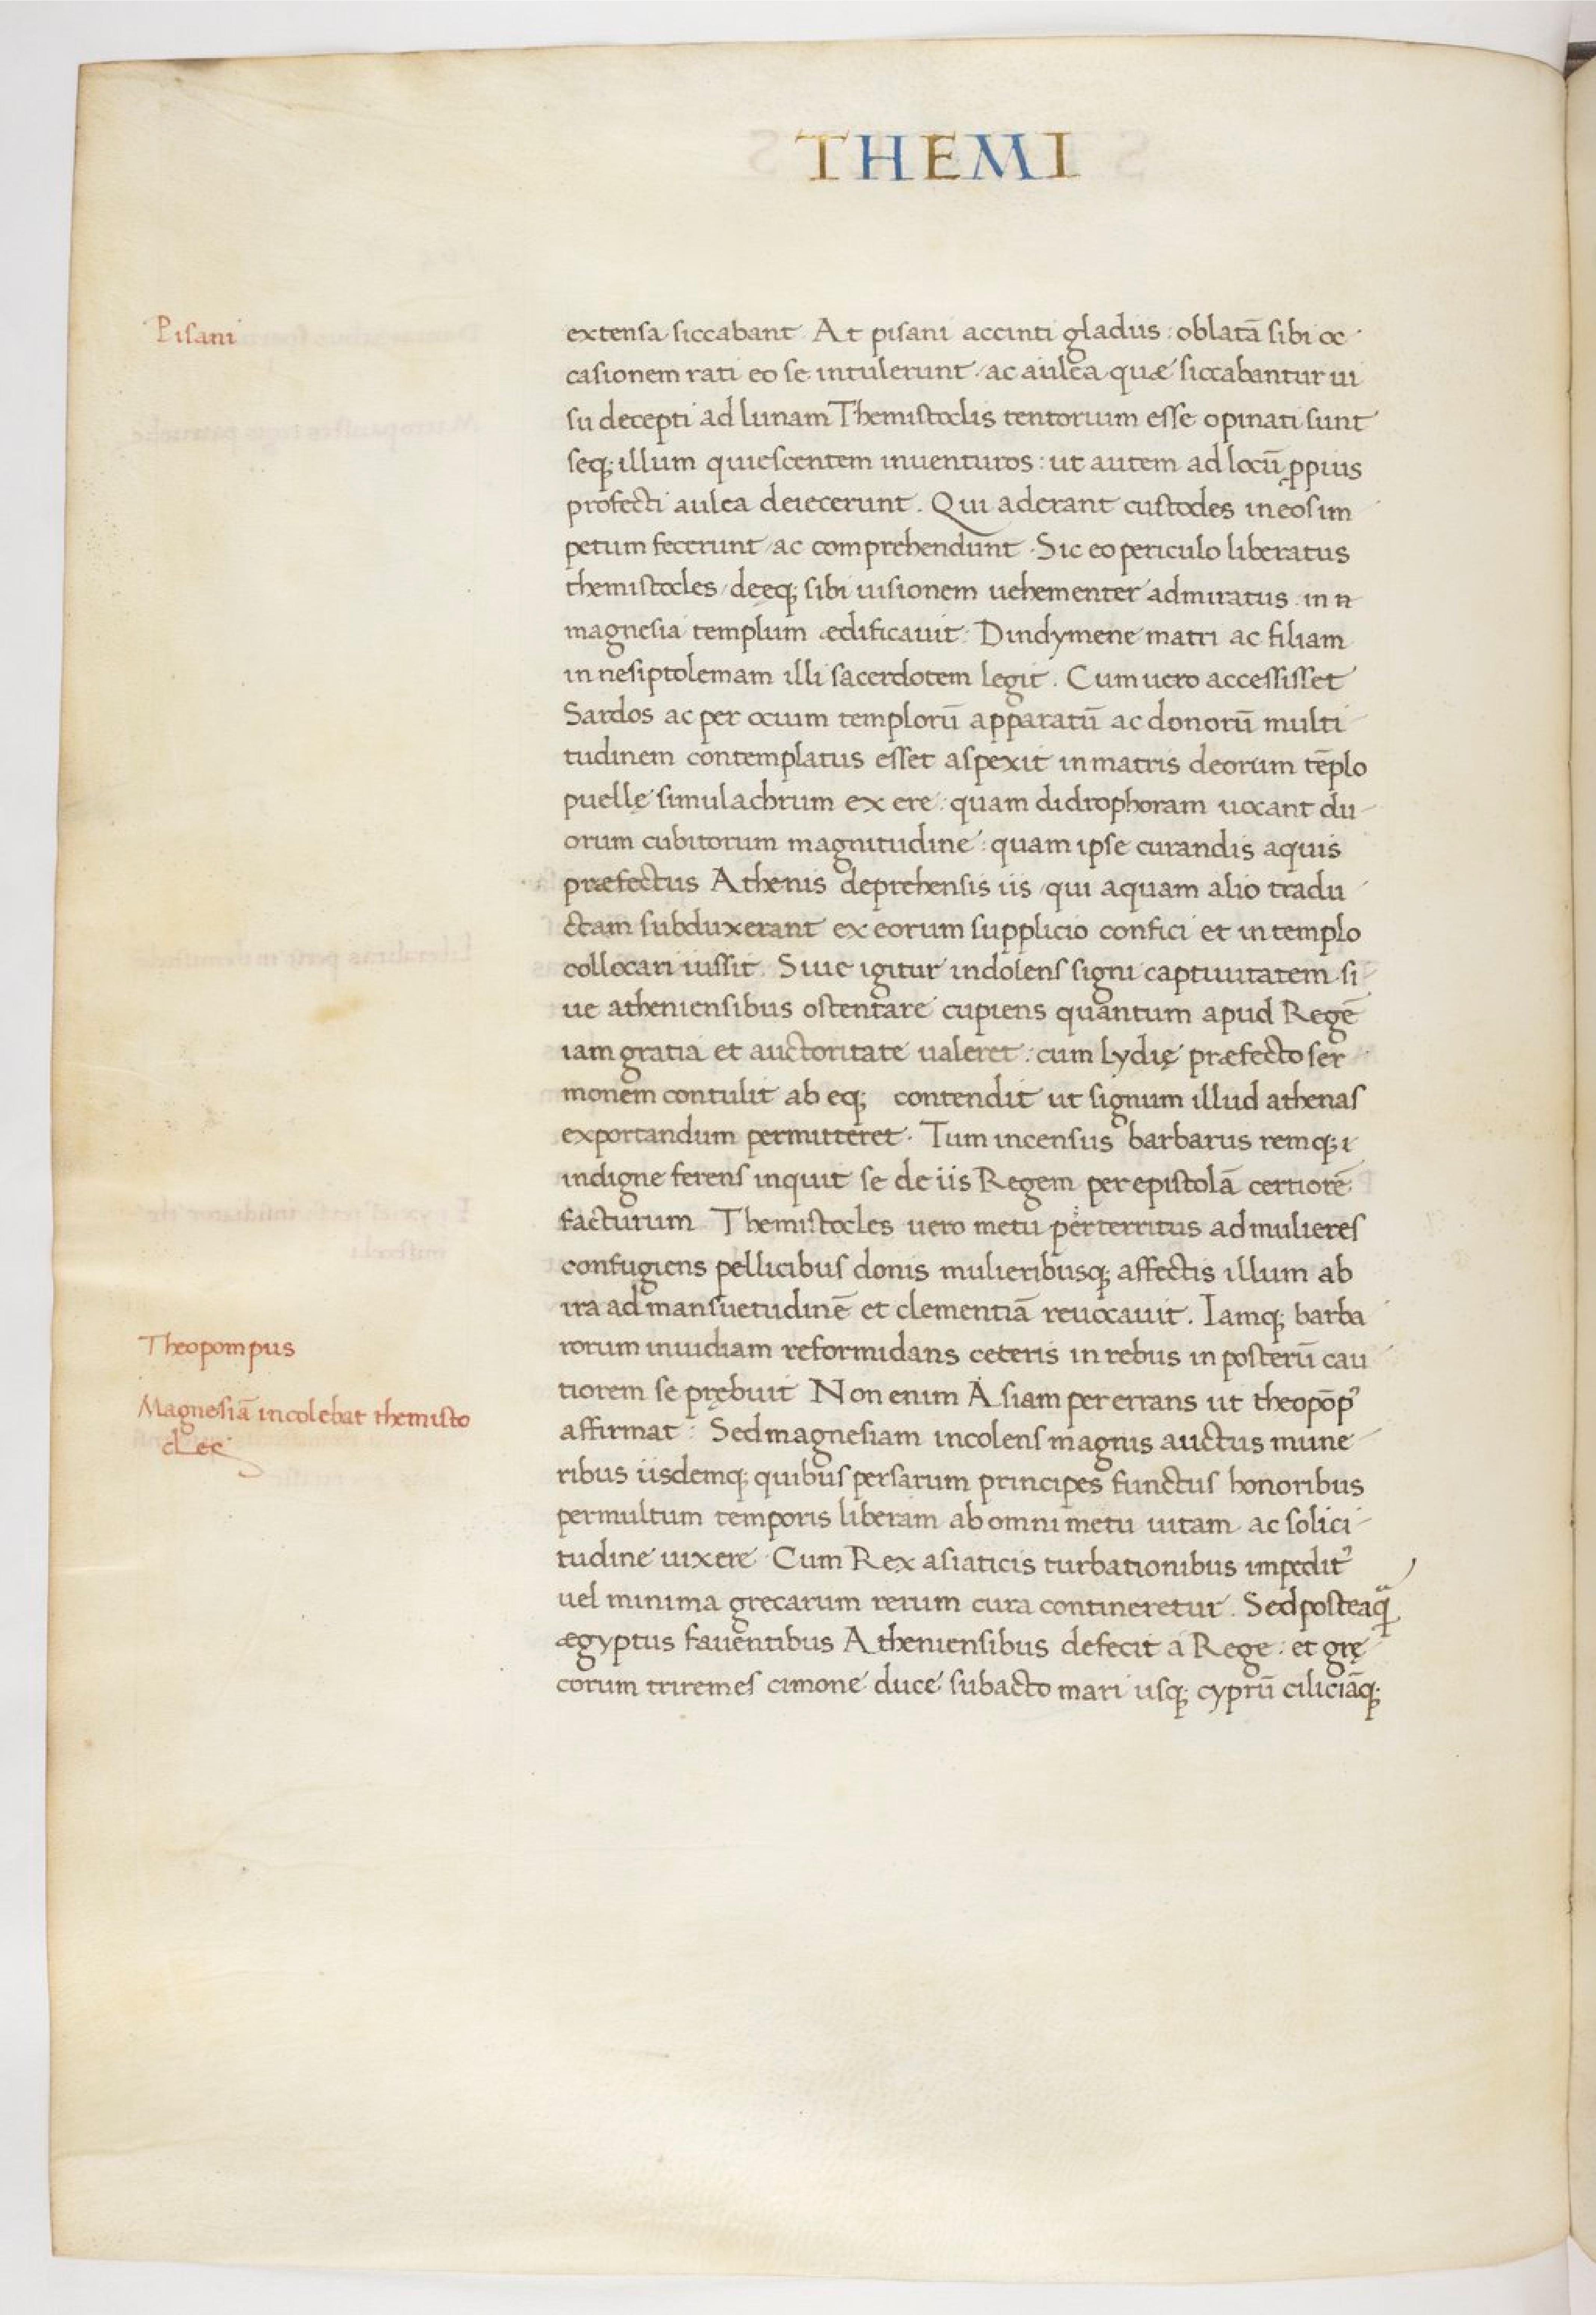 THEMI
Pisani
extensa siccabant. At pisani accinti gladiis: oblatā sibi oc
casionem rati eo se intulerunt / ac aulea quæ siccabantur ui
su decepti ad lunam Themistoclis tentorium esse opinati sunt
seq; illum quiescentem inuenturos: ut autem ad locū ꝓpius
profecti aulea deiecerunt. Qui aderant custodes in eos im
petum fecerunt / ac comprehendunt. Sic eo periculo liberatus
themistocles / deęq; sibi uisionem uehementer admiratus in n
magnesia templum ædificauit: Dindymene matri ac filiam
in nesiptolemam illi sacerdotem legit. Cum uero accessisset
Sardos ac per ocium templorū apparatū ac donorū multi
tudinem contemplatus esset aspexit in matris deorum tēplo
puellę simulachrum ex ere: quam didrophoram uocant du
orum cubitorum magnitudine: quam ipse curandis aquis
præfectus Athenis deprehensis iis / qui aquam alio tradu
ctam subduxerant ex eorum supplicio confici et in templo
collocari iussit. Siue igitur indolens signi captiuitatem si
ue atheniensibus ostentare cupiens quantum apud Regē
iam gratia et auctoritate ualeret: cum Lydię præfecto ser
monem contulit ab eq; contendit ut signum illud athenas
exportandum permitteret. Tum incensus barbarus remq; i
indigne ferens inquit se de iis Regem per epistolā certiorē
facturum Themistocles uero metu perterritus ad mulieres
confugiens pellicibus donis mulieribusq; affectis illum ab
ira ad mansuetudinē et clementiā reuocauit. Iamq; barba
rorum inuidiam reformidans ceteris in rebus in posterū cau
tiorem se prębuit Non enim Asiam pererrans ut theopōpꝰ
affirmat: Sed magnesiam incolens magnis auctus mune
ribus iisdemq; quibus persarum principes functus honoribus
permultum temporis liberam ab omni metu uitam ac solici
tudine uixere Cum Rex asiaticis turbationibus impeditꝰ
uel minima grecarum rerum cura contineretur. Sed posteaqᷓ
ægyptus fauentibus Atheniensibus defecit a Rege: et grę
corum triremes cimone duce subacto mari usq; cyprū ciliciāq;
Theopompus
Magnesiā incolebat themisto
cles